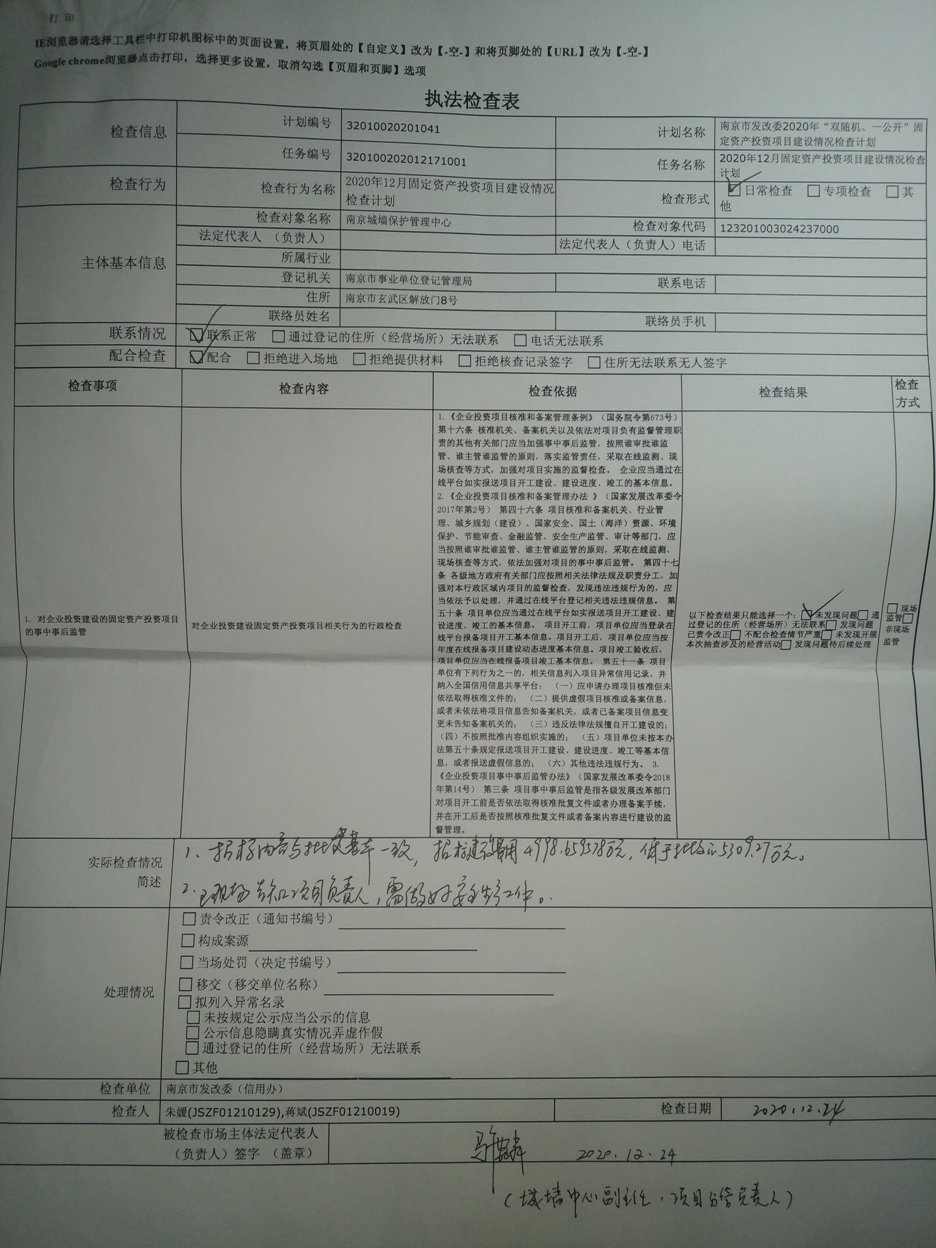 打 印
IE浏览器请选择工具栏中打印机图标中的页面设置，将页眉处的【自定义】改为【-空-】和将页脚处的【URL】改为【-空-】
Google chrome浏览器点击打印，选择更多设置，取消勾选【页眉和页脚】选项
执法检查表
检查信息
计划编号 32010020201041
计划名称
南京市发改委2020年“双随机、一公开”固
定资产投资项目建设情况检查计划
任务编号 320100202012171001
任务名称
2020年12月固定资产投资项目建设情况检查
计划
检查行为
检查行为名称
2020年12月固定资产投资项目建设情况
检查计划
检查形式
日常检查 专项检查 其
他
主体基本信息
检查对象名称 南京城墙保护管理中心
检查对象代码 123201003024237000
法定代表人 （负责人）
法定代表人（负责人）电话
所属行业
登记机关 南京市事业单位登记管理局
联系电话
住所 南京市玄武区解放门8号
联络员姓名
联络员手机
联系情况
联系正常 通过登记的住所（经营场所）无法联系 电话无法联系
配合检查
配合 拒绝进入场地 拒绝提供材料 拒绝核查记录签字 住所无法联系无人签字
检查事项
检查内容
检查依据
检查结果
检查
方式
1. 对企业投资建设的固定资产投资项目
的事中事后监管
对企业投资建设固定资产投资项目相关行为的行政检查
1.《企业投资项目核准和备案管理条例》（国务院令第673号）
第十六条 核准机关、备案机关以及依法对项目负有监督管理职
责的其他有关部门应当加强事中事后监管，按照谁审批谁监
管、谁主管谁监管的原则，落实监管责任，采取在线监测、现
场核查等方式，加强对项目实施的监督检查。 企业应当通过在
线平台如实报送项目开工建设、建设进度、竣工的基本信息。
2.《企业投资项目核准和备案管理办法 》（国家发展改革委令
2017年第2号） 第四十六条 项目核准和备案机关、行业管
理、城乡规划（建设）、国家安全、国土（海洋）资源、环境
保护、节能审查、金融监管、安全生产监管、审计等部门，应
当按照谁审批谁监管、谁主管谁监管的原则，采取在线监测、
现场核查等方式，依法加强对项目的事中事后监管。 第四十七
条 各级地方政府有关部门应按照相关法律法规及职责分工，加
强对本行政区域内项目的监督检查，发现违法违规行为的，应
当依法予以处理，并通过在线平台登记相关违法违规信息。 第
五十条 项目单位应当通过在线平台如实报送项目开工建设、建
设进度、竣工的基本信息。项目开工前，项目单位应当登录在
线平台报备项目开工基本信息。项目开工后，项目单位应当按
年度在线报备项目建设动态进度基本信息。项目竣工验收后，
项目单位应当在线报备项目竣工基本信息。 第五十一条 项目
单位有下列行为之一的，相关信息列入项目异常信用记录，并
纳入全国信用信息共享平台： （一）应申请办理项目核准但未
依法取得核准文件的； （二）提供虚假项目核准或备案信息，
或者未依法将项目信息告知备案机关，或者已备案项目信息变
更未告知备案机关的； （三）违反法律法规擅自开工建设的；
（四）不按照批准内容组织实施的； （五）项目单位未按本办
法第五十条规定报送项目开工建设、建设进度、竣工等基本信
息，或者报送虚假信息的； （六）其他违法违规行为。 3.
《企业投资项目事中事后监管办法》（国家发展改革委令2018
年第14号） 第三条 项目事中事后监管是指各级发展改革部门
对项目开工前是否依法取得核准批复文件或者办理备案手续，
并在开工后是否按照核准批复文件或者备案内容进行建设的监
督管理。
以下检查结果只能选择一个： 未发现问题 通
过登记的住所（经营场所）无法联系 发现问题
已责令改正 不配合检查情节严重 未发现开展
本次抽查涉及的经营活动 发现问题待后续处理
现场
监管
非现场
监管
实际检查情况
简述
1、招标内容与批复基本一致，招标建设费用4998.659578万元，低于批复的5309.27万元。
2、已现场告知项目负责人，需做好安全生产工作。
处理情况
责令改正（通知书编号）
构成案源
当场处罚（决定书编号）
移交（移交单位名称）
拟列入异常名录
未按规定公示应当公示的信息
公示信息隐瞒真实情况弄虚作假
通过登记的住所（经营场所）无法联系
其他
检查单位 南京市发改委（信用办）
检查人 朱媛(JSZF01210129),蒋斌(JSZF01210019)
检查日期 2020.12.24
被检查市场主体法定代表人
（负责人）签字 （盖章）
2020.12.24
（城墙中心副主任，项目分管负责人）